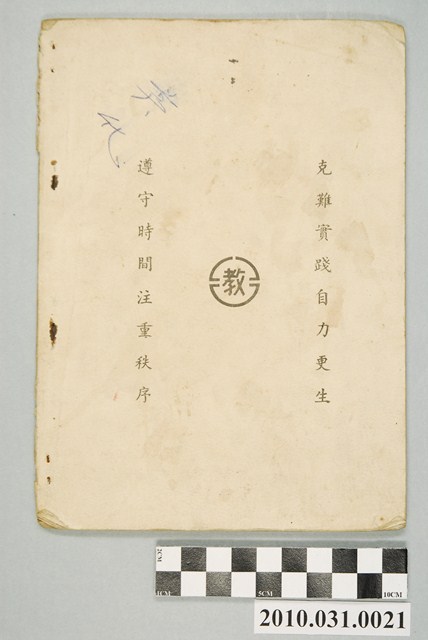 克難實踐自力更生
教
遵守時間注重秩序
2CM
1CM
5CM
10CM
2010.031.0021